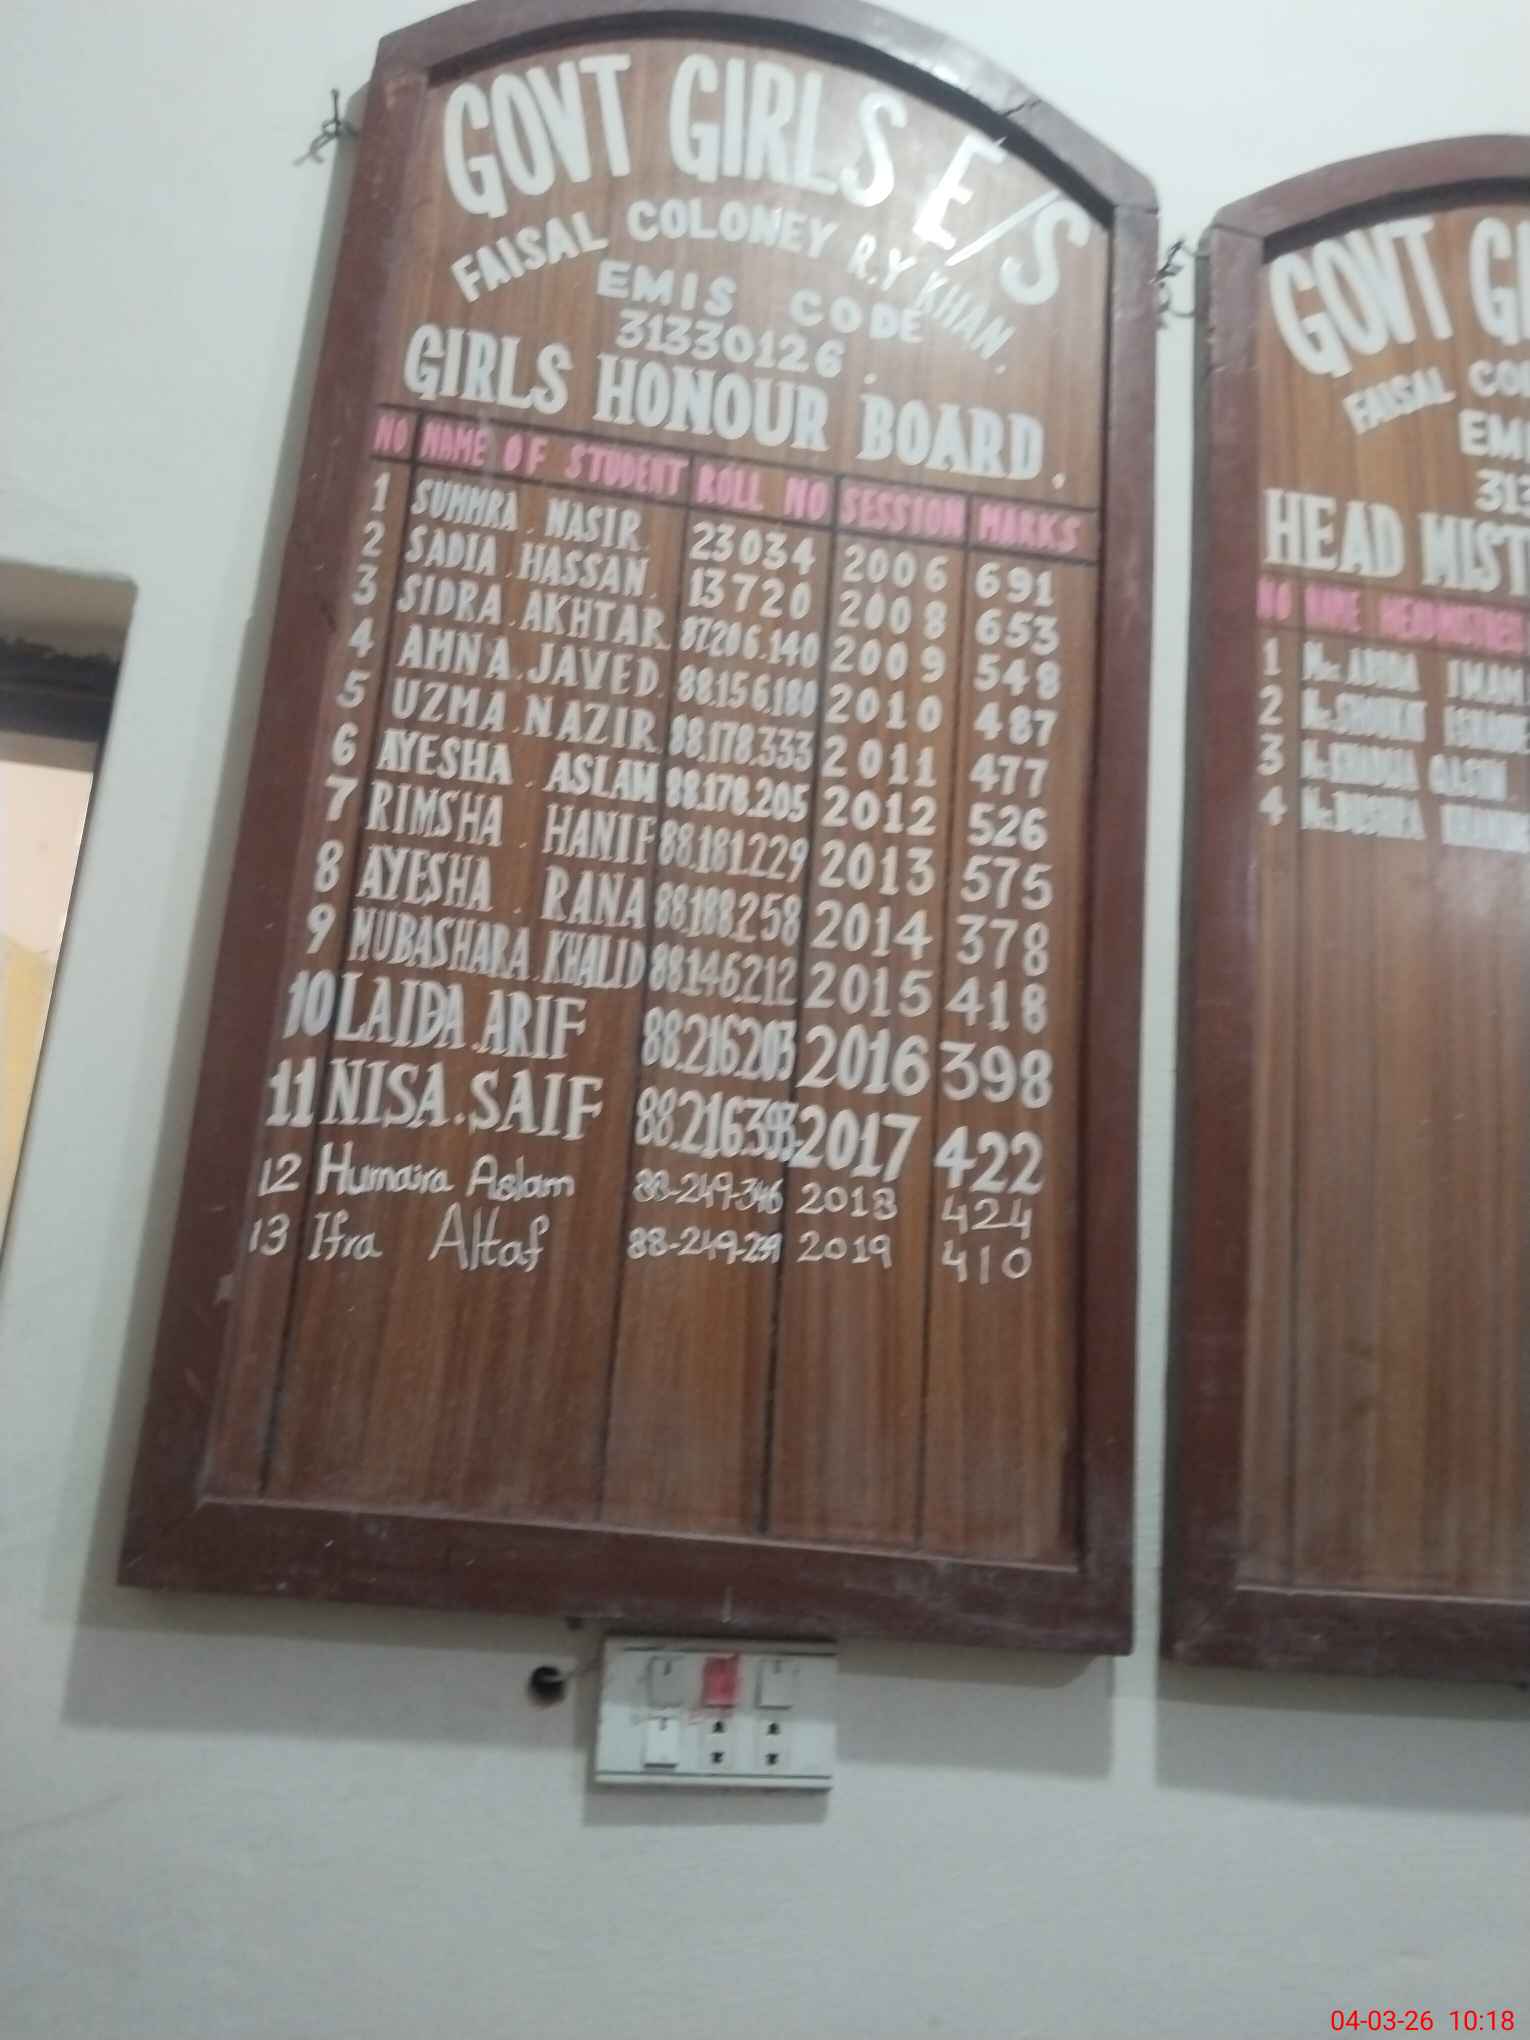 GOVT GIRLS E/S
FAISAL COLONEY R.Y KHAN.
EMIS CODE
31330126.
GIRLS HONOUR BOARD.
NO NAME OF STUDENT ROLL NO SESSION MARKS
1 SUMMRA. NASIR. 23034 2006 691
2 SADIA. HASSAN. 13720 2008 653
3 SIDRA. AKHTAR. 87.206.140 2009 548
4 AMNA. JAVED. 88.156.180 2010 487
5 UZMA. NAZIR. 88.178.333 2011 477
6 AYESHA. ASLAM 88.178.205 2012 526
7 RIMSHA. HANIF 88.181.229 2013 575
8 AYESHA. RANA 88.188.258 2014 378
9 MUBASHARA. KHALID 88.146.212 2015 418
10 LAIBA. ARIF 88.216.203 2016 398
11 NISA. SAIF 88.216.393 2017 422
12 Humaira Aslam 88-249-346 2018 424
13 Ifra Altaf 88-249-239 2019 410
GOVT
FAISAL
313
HEAD
NO
1
2
3
4
04-03-26 10:18